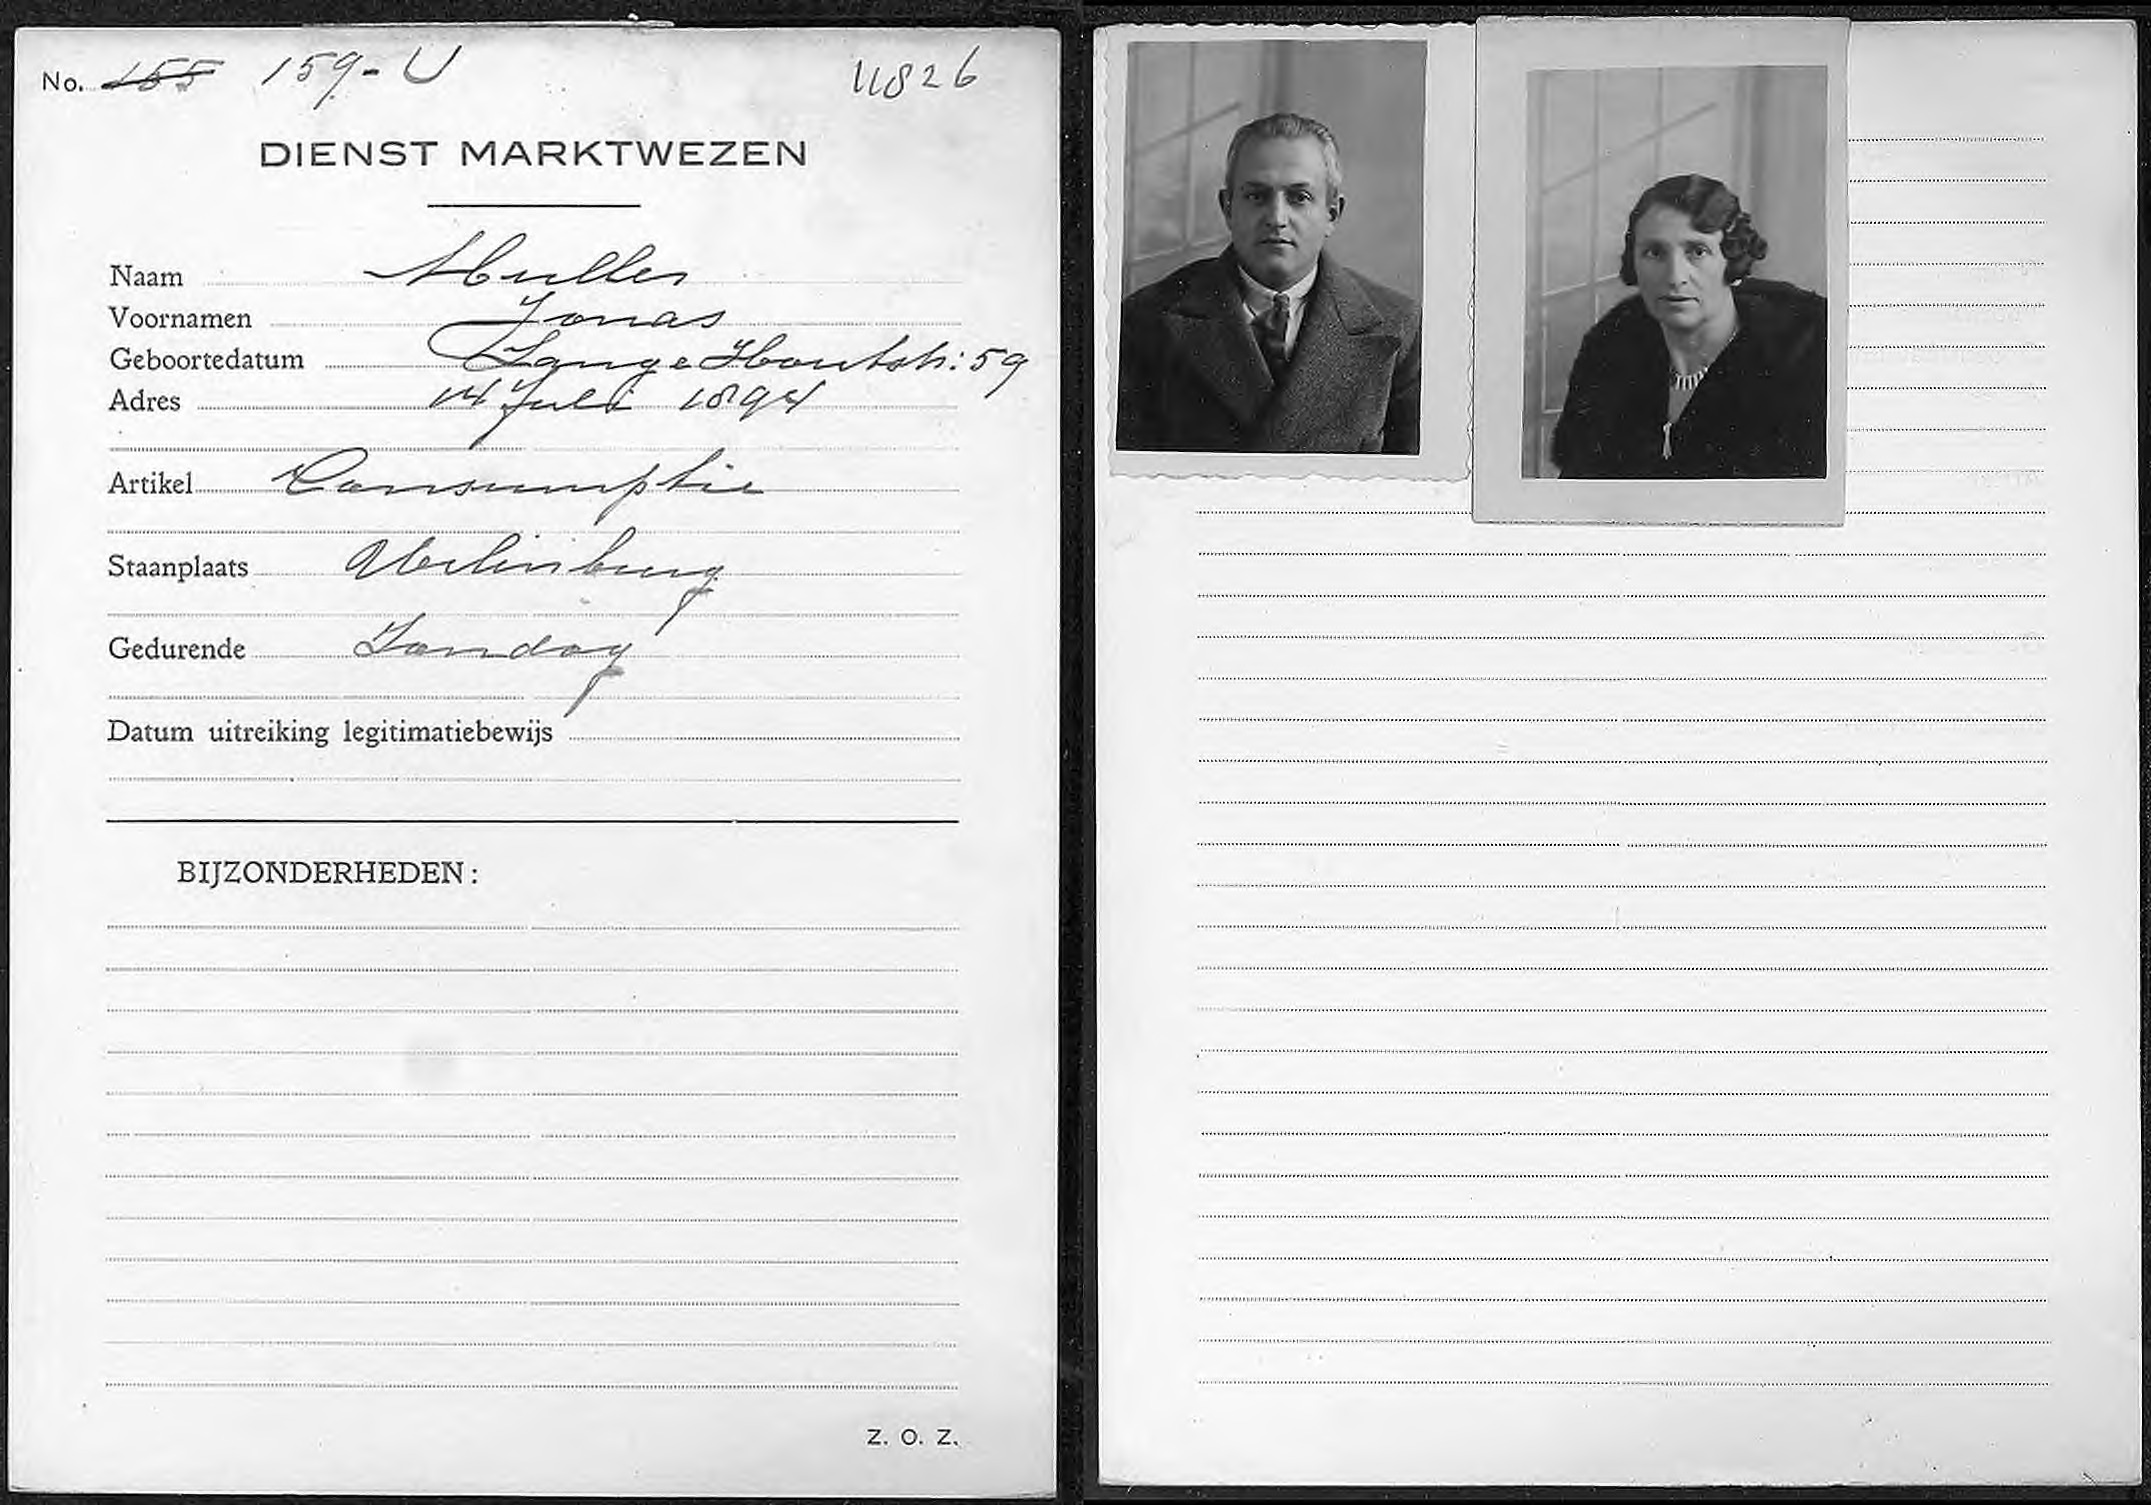 No. 155 159-U 11826
DIENST MARKTWEZEN
Naam Muller
Voornamen Jonas
Geboortedatum Lange Houtstr: 59
Adres 14 Juli 1894
Artikel Consumptie
Staanplaats Uilenburg
Gedurende Zondag
Datum uitreiking legitimatiebewijs
BIJZONDERHEDEN:
Z. O. Z.